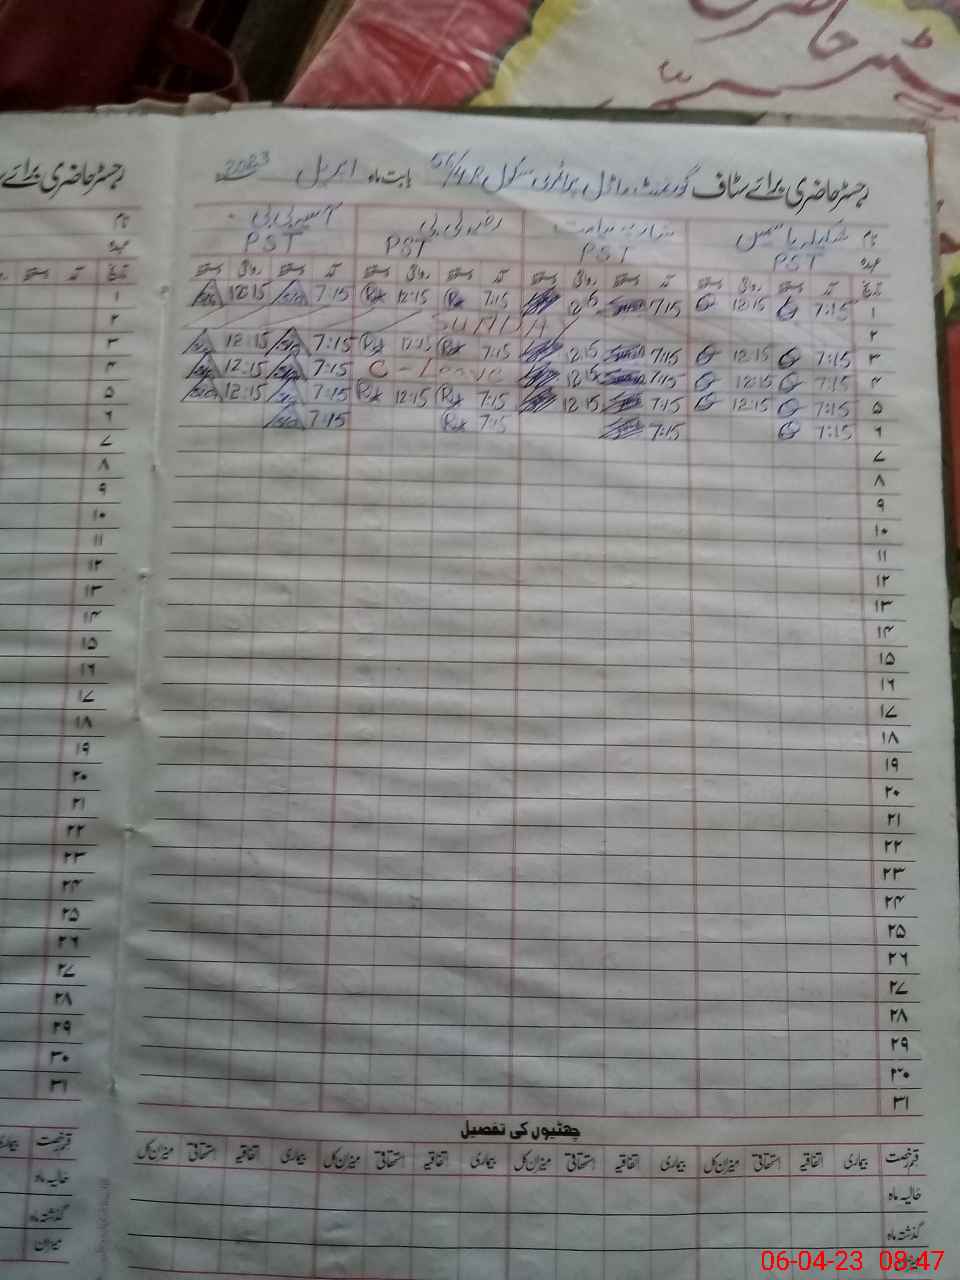 حاضری
رجسٹر حاضری برائے سٹاف گورنمنٹ ماڈل پرائمری سکول 56/4R بابت ماہ اپریل 2023
رجسٹر حاضری برائے
نام شکیلہ یاسمین آسیہ بی بی
عہدہ PST PST PST PST
تاریخ آمد دستخط روانگی دستخط آمد دستخط روانگی دستخط آمد دستخط روانگی دستخط آمد دستخط روانگی دستخط
۱ 7:15 12:15 7:15 12:15 7:15 12:15 7:15 12:15
۲ SUNDAY
۳ 7:15 12:15 7:15 12:15 7:15 12:15 7:15 12:15
۴ 7:15 12:15 7:15 12:15 C-Leave 7:15 12:15
۵ 7:15 12:15 7:15 12:15 7:15 12:15 7:15 12:15
۶ 7:15 7:15 7:15 7:15
۷
۸
۹
۱۰
۱۱
۱۲
۱۳
۱۴
۱۵
۱۶
۱۷
۱۸
۱۹
۲۰
۲۱
۲۲
۲۳
۲۴
۲۵
۲۶
۲۷
۲۸
۲۹
۳۰
۳۱
چھٹیوں کی تفصیل
قسم رخصت بیماری اتفاقیہ استحقاقی میزان کل بیماری اتفاقیہ استحقاقی میزان کل بیماری اتفاقیہ استحقاقی میزان کل بیماری اتفاقیہ استحقاقی میزان کل
حالیہ ماہ
گذشتہ ماہ
میزان
نام
عہدہ
تاریخ آمد دستخط
۱
۲
۳
۴
۵
۶
۷
۸
۹
۱۰
۱۱
۱۲
۱۳
۱۴
۱۵
۱۶
۱۷
۱۸
۱۹
۲۰
۲۱
۲۲
۲۳
۲۴
۲۵
۲۶
۲۷
۲۸
۲۹
۳۰
۳۱
قسم رخصت بیماری
حالیہ ماہ
گذشتہ ماہ
میزان
06-04-23 08:47